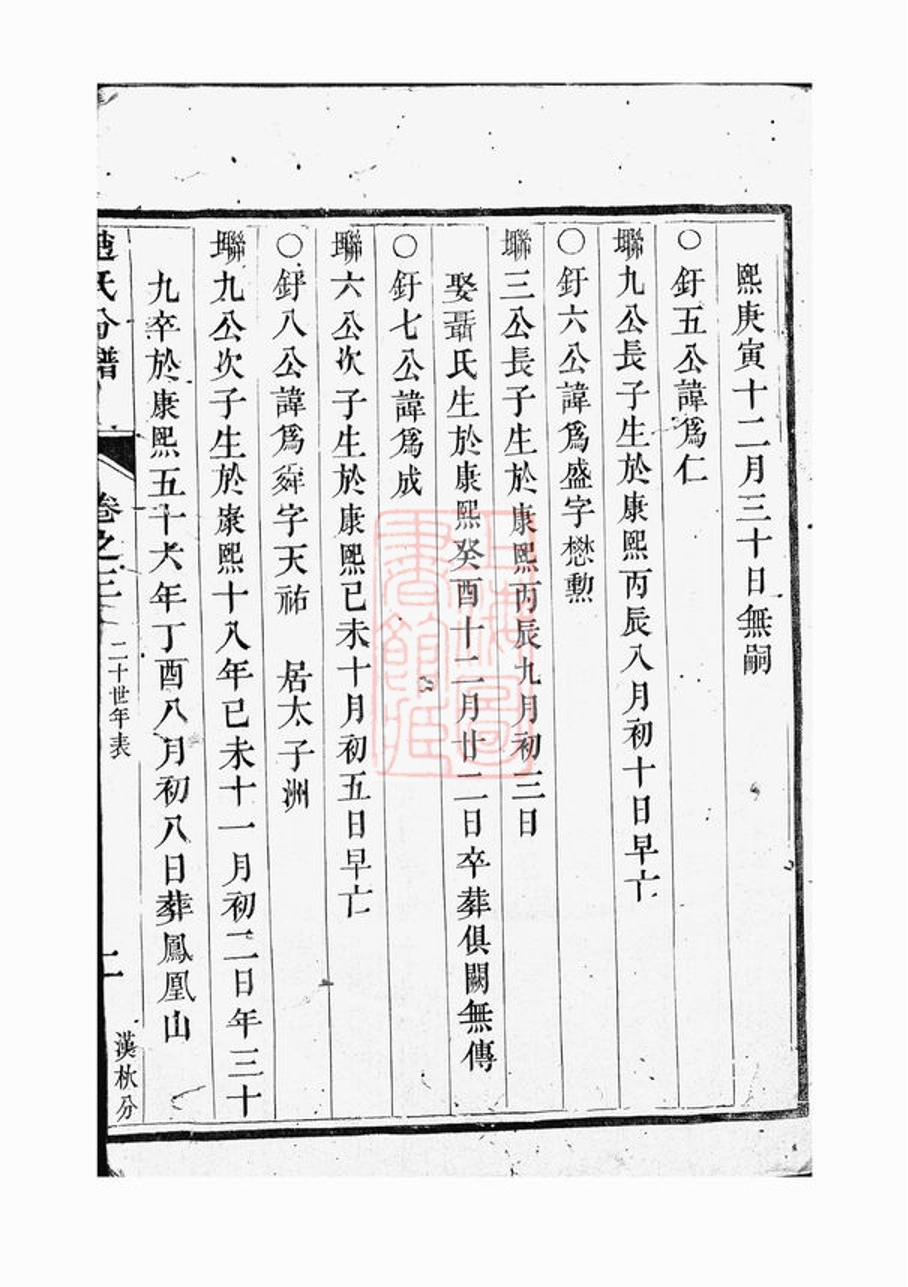 熙庚寅十二月三十日無嗣
○釪五公諱爲仁
聯九公長子生於康熙丙辰八月初十日早亡
○釪六公諱爲盛字懋勲
聯三公長子生於康熙丙辰九月初三日
娶聶氏生於康熙癸酉十二月廿二日卒葬俱闕無傳
○釪七公諱爲成
聯六公次子生於康熙己未十月初五日早亡
○釪八公諱爲舜字天祐 居太子洲
聯九公次子生於康熙十八年己未十一月初二日年三十
九卒於康熙五十六年丁酉八月初八日葬鳳凰山
趙氏分譜
卷之三
二十世年表
二
漢秋分
上海圖書館藏